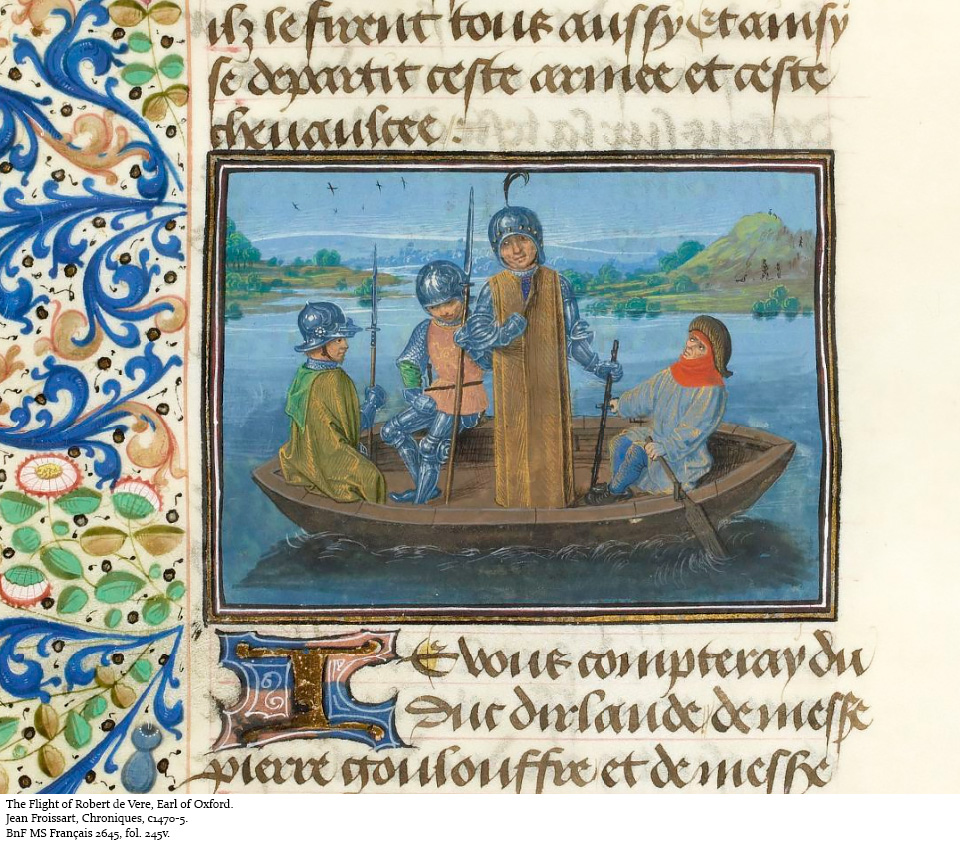 ilz le firent tous aussy Et ainsy
se departit ceste armee et ceste
cheuaulcee .
Ie vous compteray du
Duc dirlande de messe
pierre goulouffre et de messe
The Flight of Robert de Vere, Earl of Oxford.
Jean Froissart, Chroniques, c1470-5.
BnF MS Français 2645, fol. 245v.